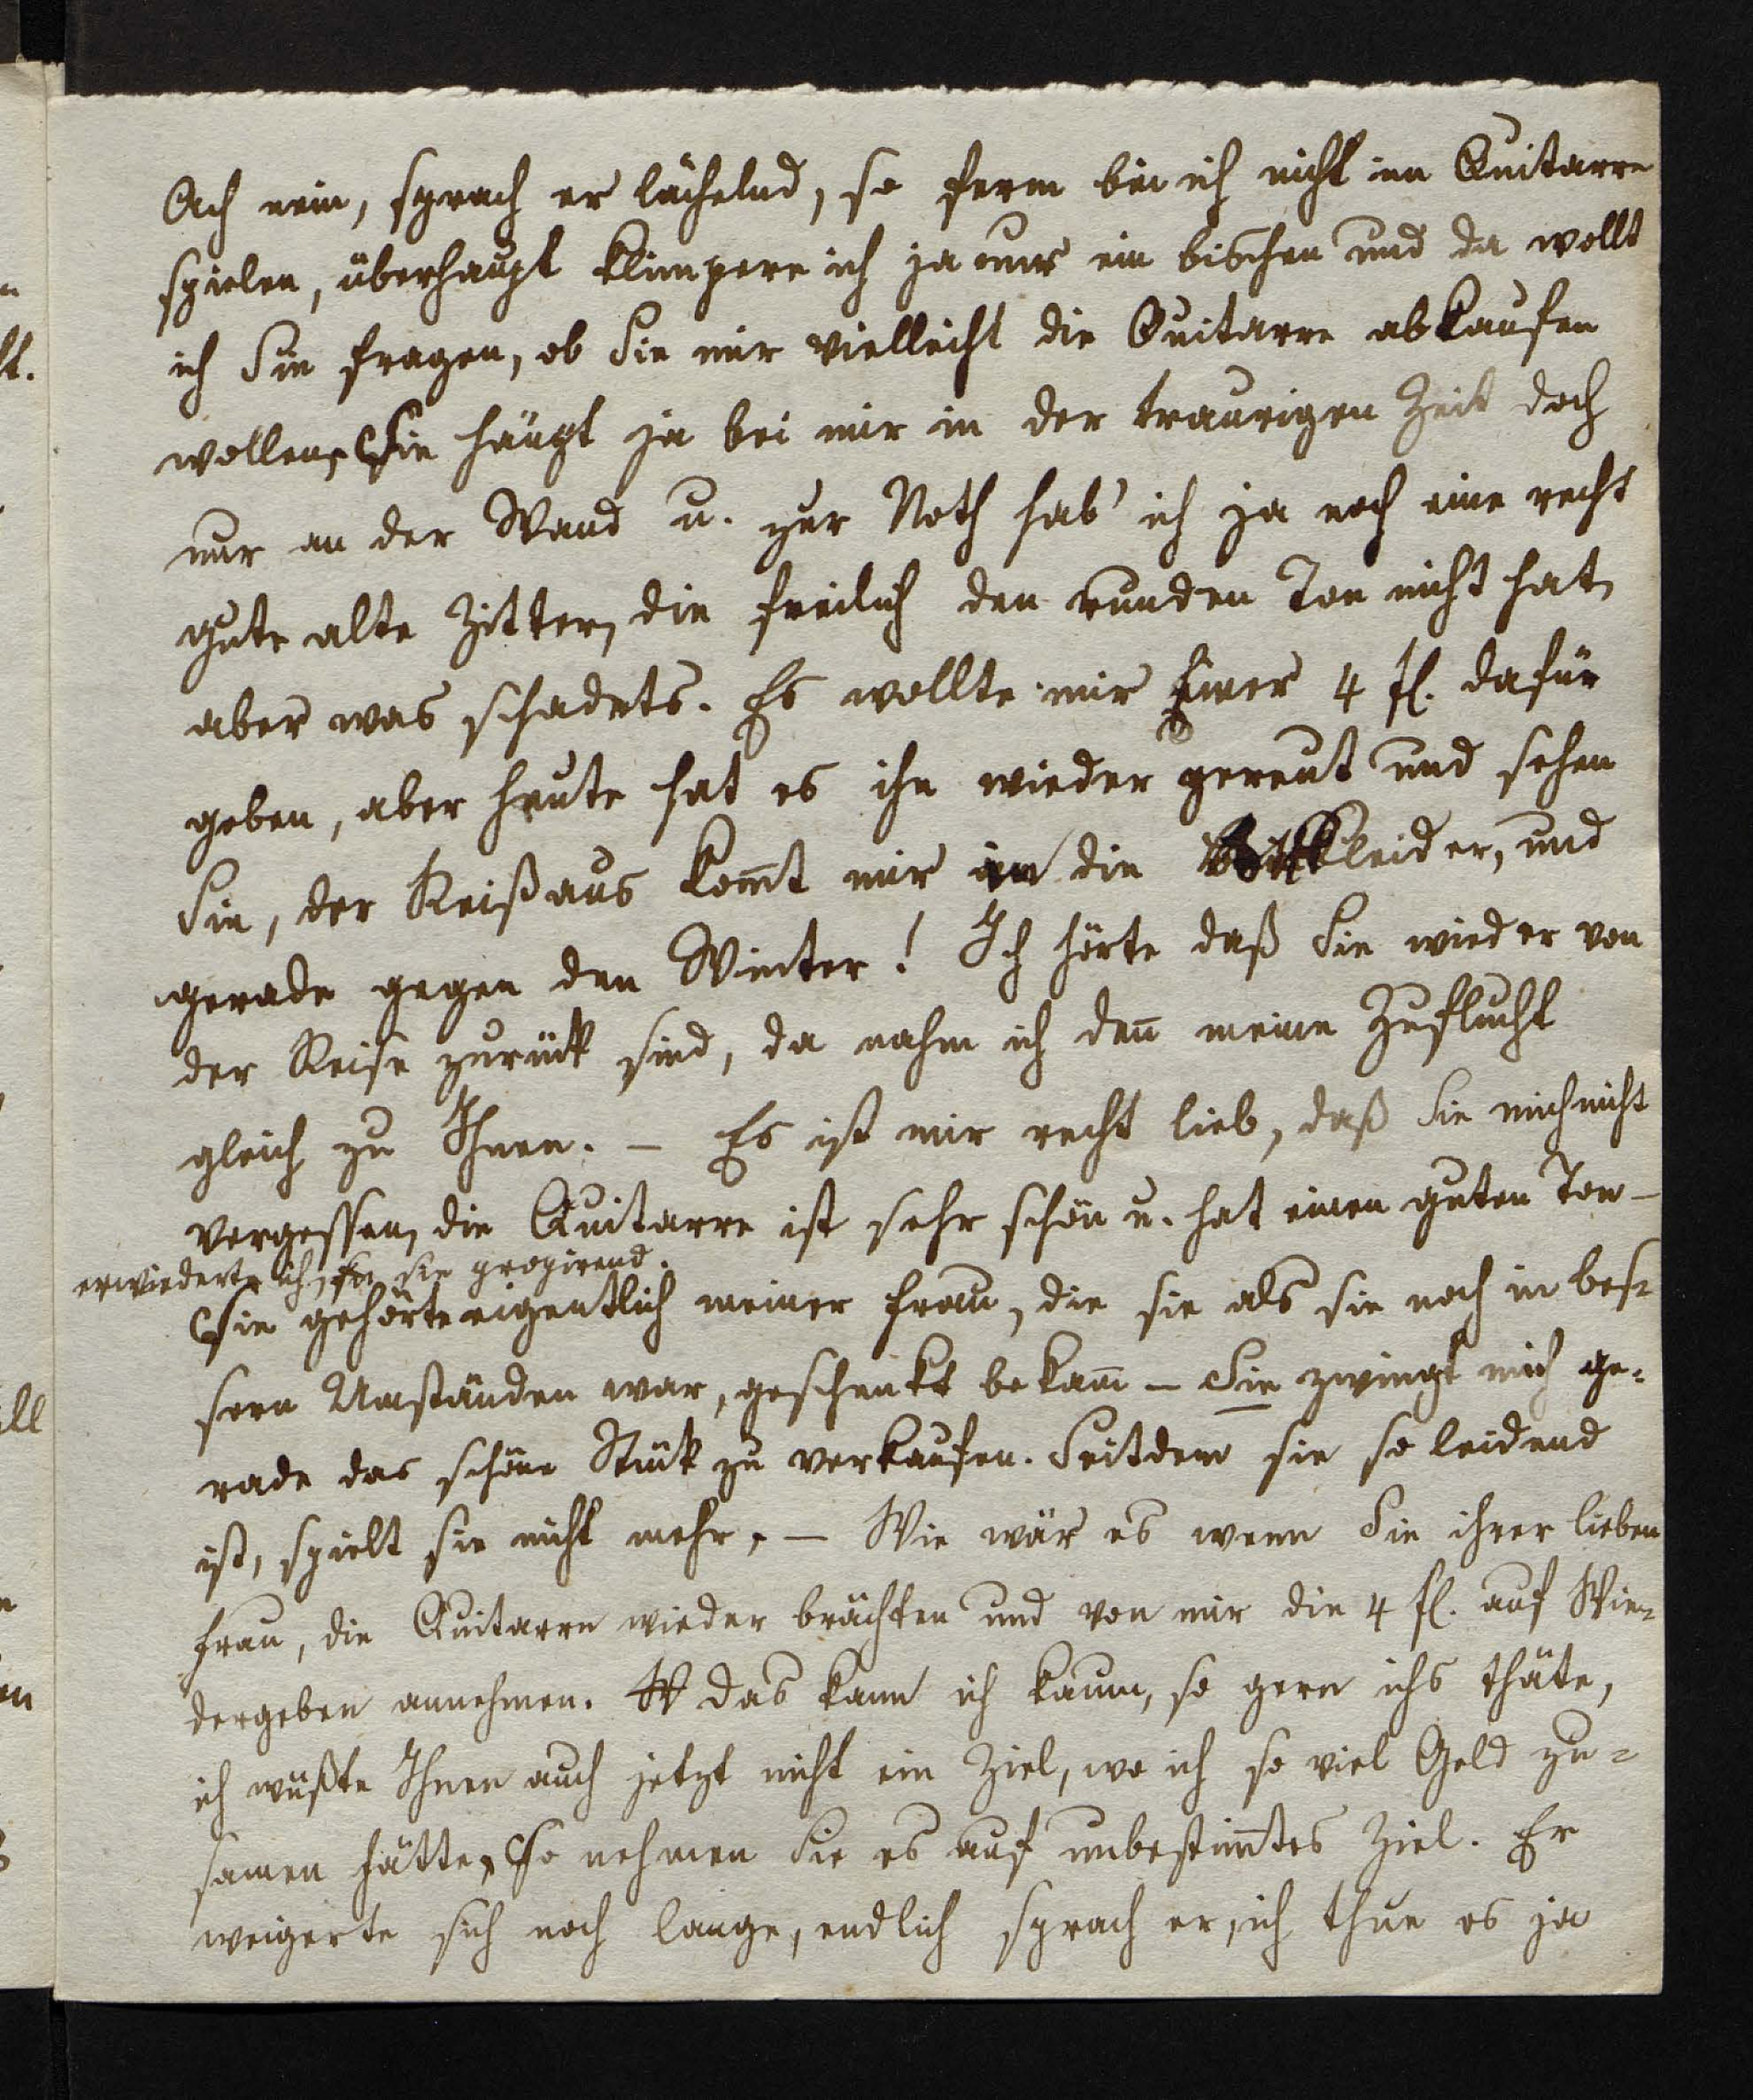 Ach nein, sprach er lächelnd, so ferm bin ich nicht im Quitarre
spielen, überhaupt klimpere ich ja nur ein bischen und da wollt
ich Sie fragen, ob Sie mir vielleicht die Quitarre abkaufen
wollen, Sie hängt ja bei mir in der traurigen Zeit doch
nur an der Wand u. zur Noth hab' ich ja noch eine recht
gute alte Zitter, die freilich den runden Ton nicht hat,
aber was schadets. Es wollte mir Einer 4 fl. dafür
geben, aber heute hat es ihn wieder gereut und sehen
Sie, der Reißaus komt mir in die kleider, und
gerade gegen den Winter! Ich hörte daß Sie wieder von
der Reise zurück sind, da nahm ich den meine Zuflucht
gleich zu Ihnen. – Es ist mir recht lieb, daß Sie mich nicht
vergessen, die Quitarre ist sehr schön u. hat einen guten Ton –
erwiederte ich, sie propirend.
Sie gehörte eigentlich meiner Frau, die sie als sie noch in bes-
sern Umständen war, geschenkt bekam – Sie zwingt mich ge-
rade das schöne Stük zu verkaufen. Seitdem sie so leidend
ist, spielt sie nicht mehr, – Wie wär es wenn Sie ihrer lieben
Frau, die Quitarre wieder brächten und von mir die 4 fl. auf Wie-
dergeben annehmen. das kann ich kaum, so gern ichs thäte,
ich wüßte Ihnen auch jetzt nicht ein Ziel, wo ich so viel Geld zu-
samen hätte, So nehmen Sie es auf unbestimtes Ziel. Er
weigerte sich noch lange, endlich sprach er, ich thue es ja